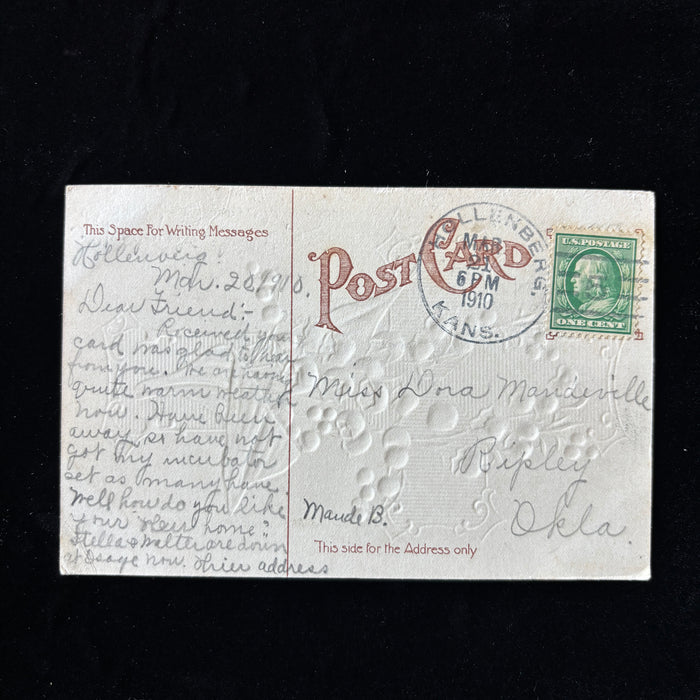 This Space For Writing Messages
Hollenberg
Mar. 20, 1910.
Dear Friend:-
Received your
card was glad to hear
from you. We are having
quite warm weather
now. Have been
away so have not
got my incubator
set as many have.
Well how do you like
your "new home".
Stella & Walter are down
at Osage now. Their address
POST CARD
HOLLENBERG,
MAR
21
6 PM
1910
KANS.
U.S. POSTAGE
ONE CENT
Miss Dora Mandeville
Ripley
Okla.
Maude B.
This side for the Address only